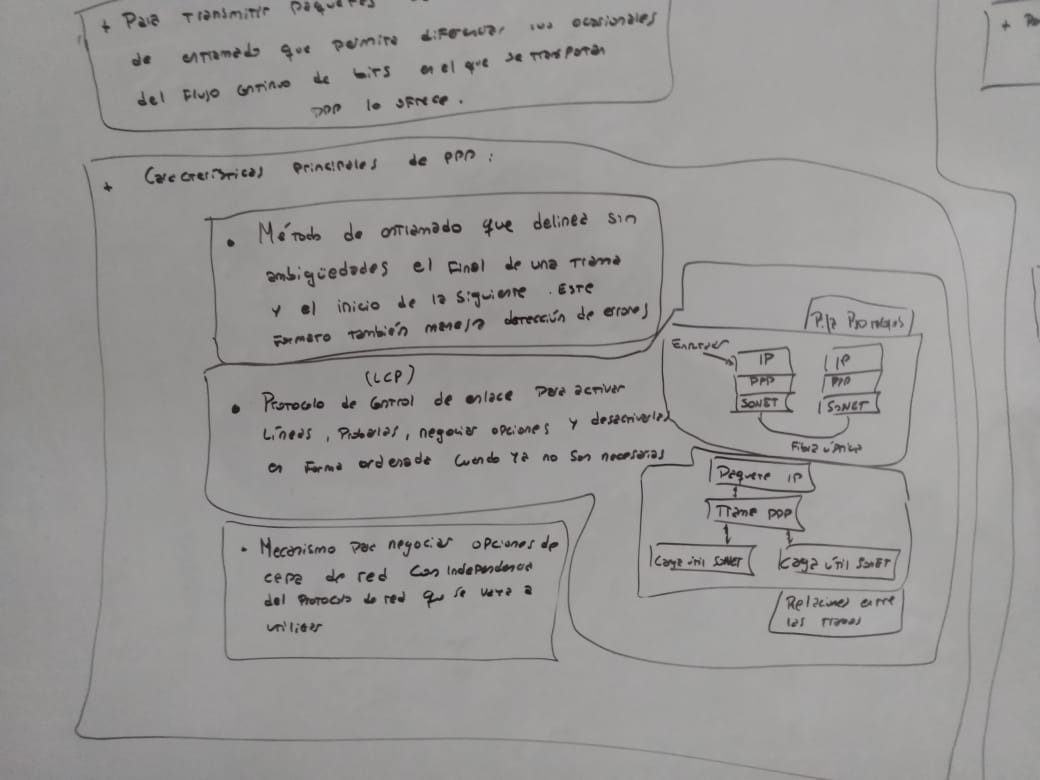 + Para transmitir paquetes
de entramado que permita diferenciar los ocasionales
del flujo continuo de bits en el que se transportan
PPP lo ofrece.
+ Características principales de PPP:
• Método de entramado que delinea sin
ambigüedades el final de una trama
y el inicio de la siguiente. Este
formato también maneja detección de errores
(LCP)
• Protocolo de control de enlace para activar
líneas, probarlas, negociar opciones y desactivarlas
en forma ordenada cuando ya no son necesarias
• Mecanismo para negociar opciones de
capa de red con independencia
del protocolo de red que se vaya a
utilizar
Pila Protocolos
IP
PPP
SONET
IP
PPP
SONET
Fibra óptica
Paquete IP
Trama PPP
Carga útil SONET
Carga útil SONET
Relaciones entre
las tramas
+